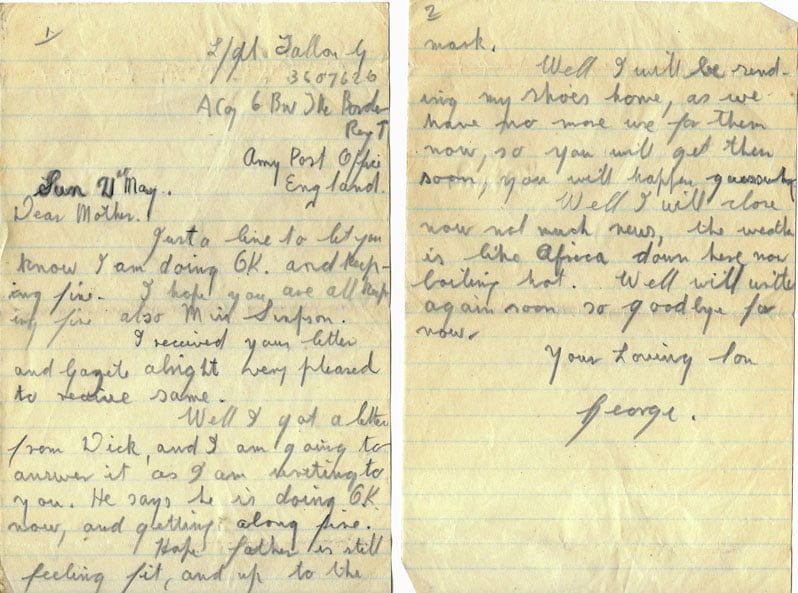 1
L/Sgt Tallon G
3607620
A Coy 6 Bn The Border
Reg T
Amy Post Office
England.
Sun 21st May.
Dear Mother.
Just a line to let you
know I am doing OK. and keep-
ing fine. I hope you are all keep
ing fine also Miss Simpson.
I received your letter
and Gazete alright very pleased
to receive same.
Well I got a letter
from Dick, and I am going to
answer it as I am writing to
you. He says he is doing OK
now, and getting along fine.
Hope father is still
feeling fit, and up to the
2
mark.
Well I will be send-
ing my shoes home, as we
have no more use for them
now, so you will get them
soon, you will happen
Well I will close
now not much news, the weath
is like Africa down here now
boiling hot. Well will write
again soon so goodbye for
now.
Your Loving Son
George.